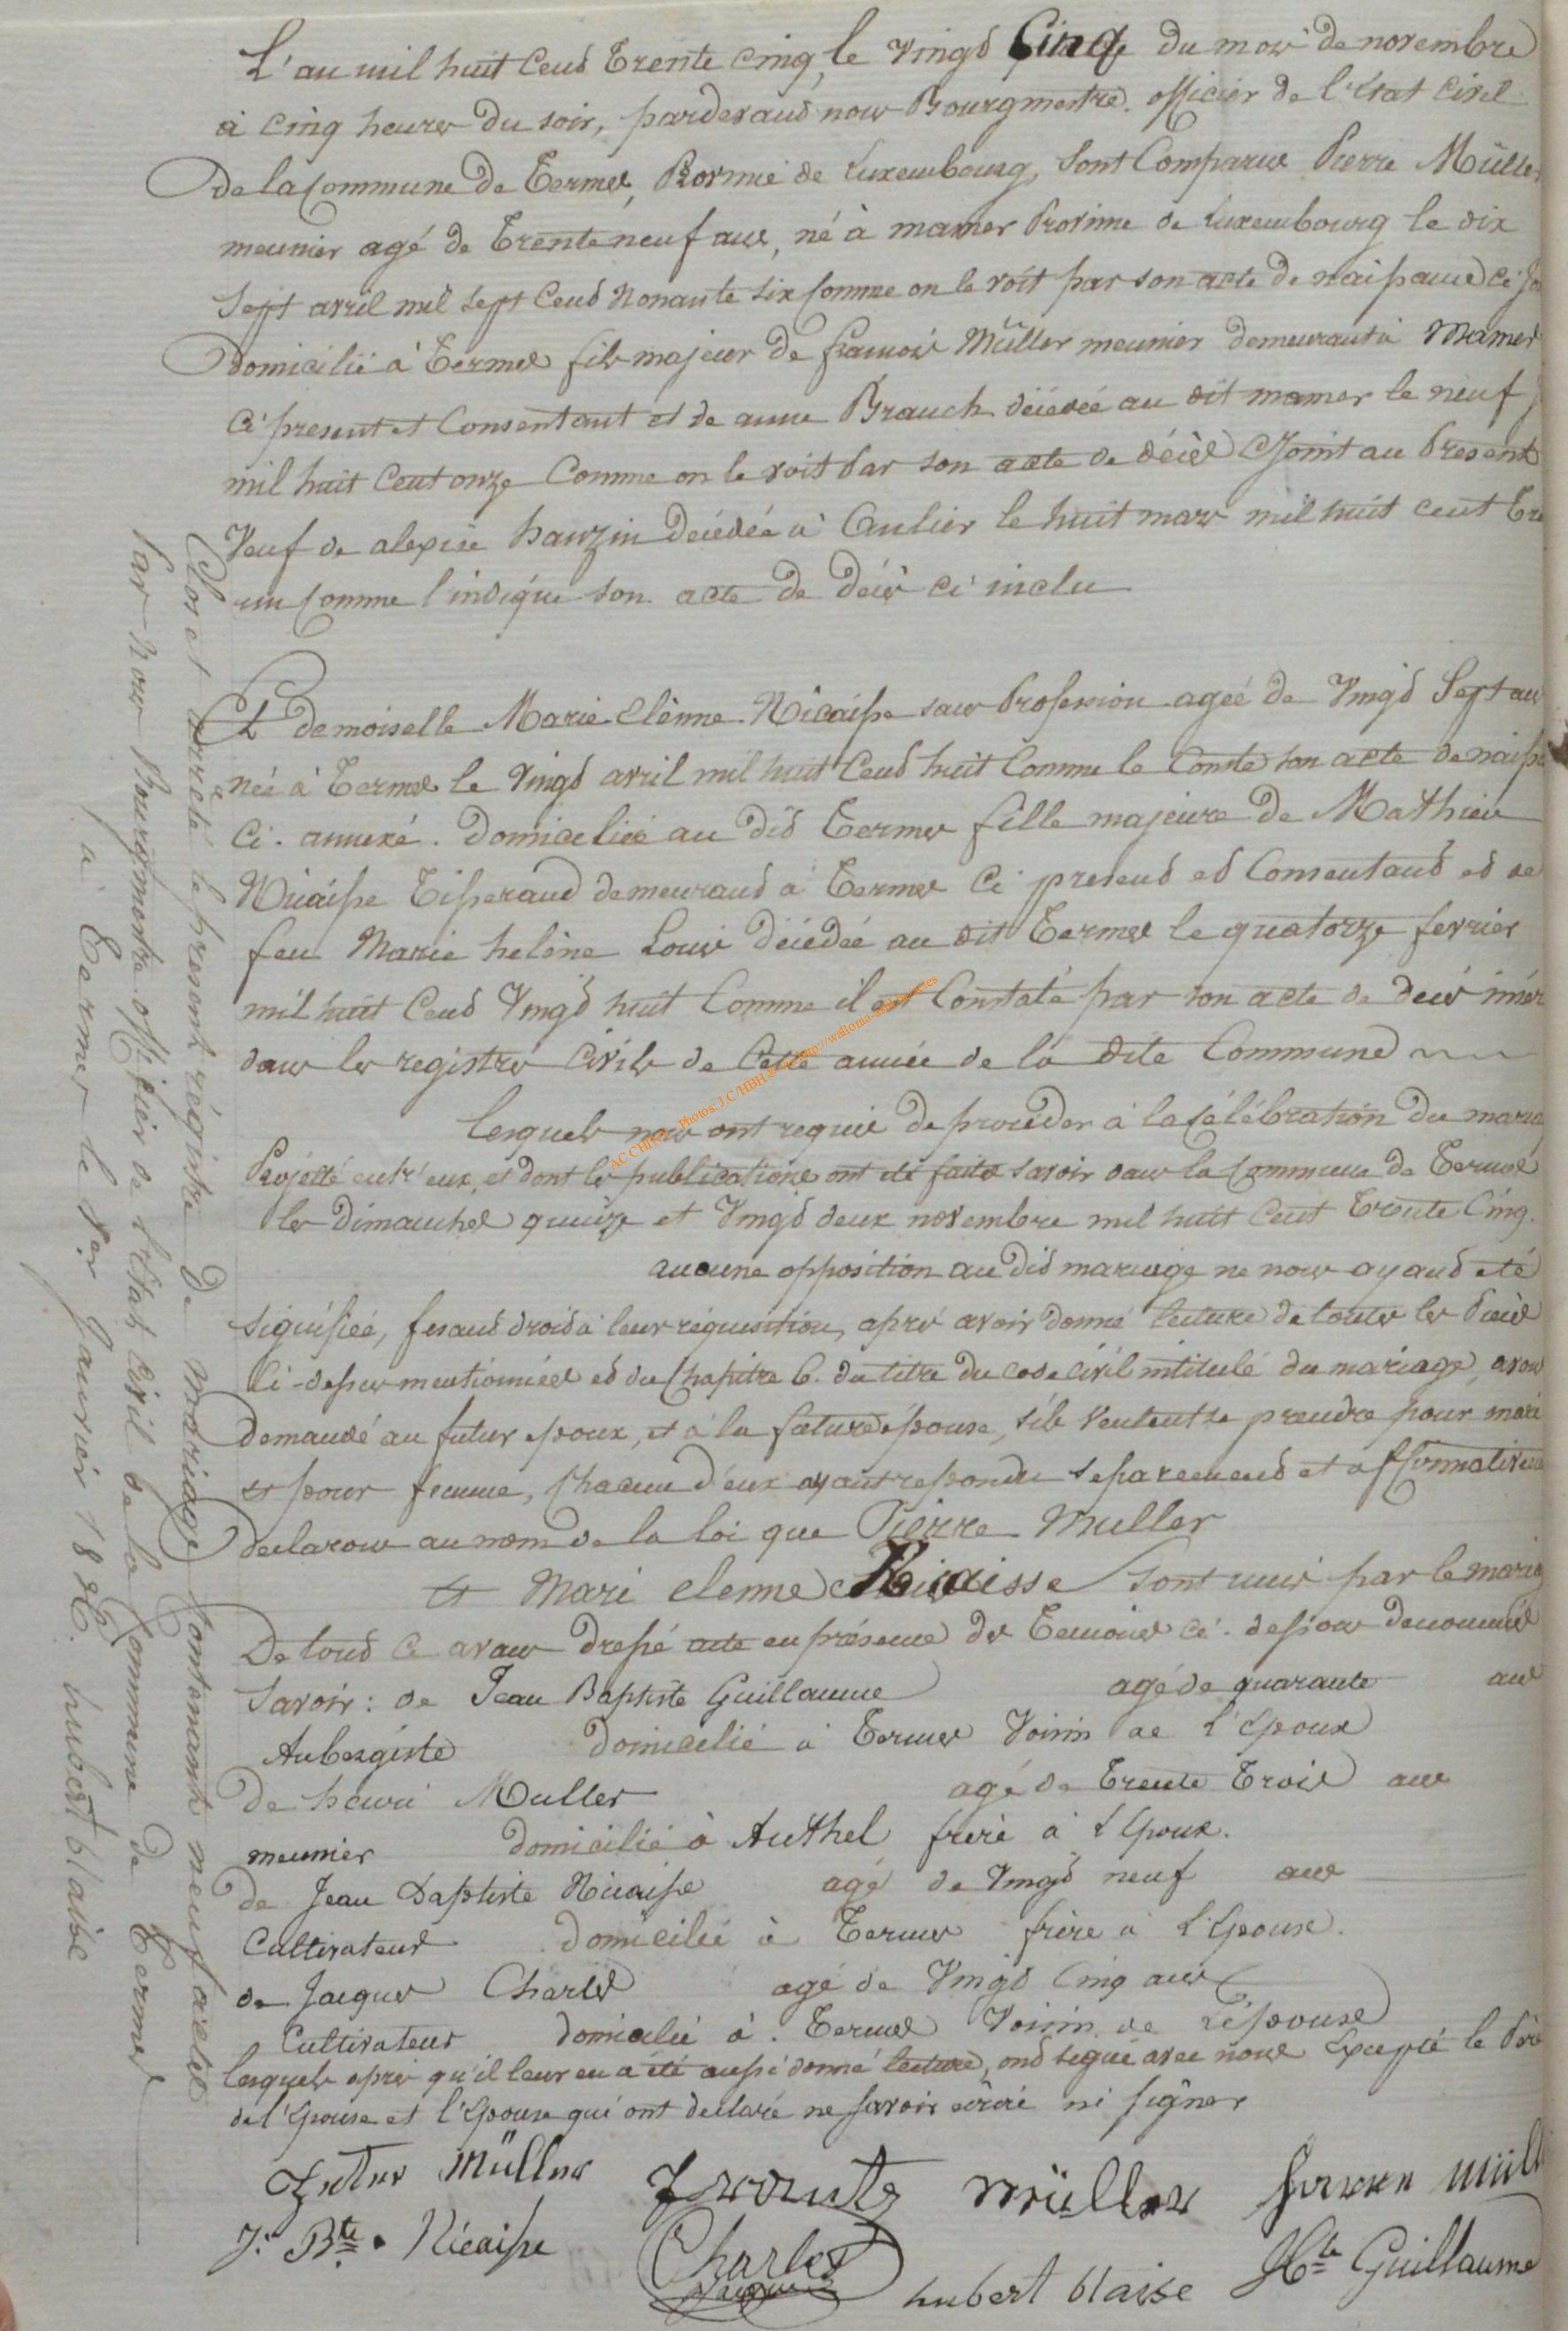 L'an mil huit Cend Trente cinq, le Vingd Cinq du mois de novembre
à cinq heures du soir, pardevand nous Bourgmestre officier de l'Etat Civil
De la Commune de Termes, Provinie de Luxembourg, sont Comparus Pierre Müller
meunier agé de Trente neuf ans, né à mamer Provinne de Luxembourg le dix
Sept avril mil sept Cend Nonante six Comme on le voit par son acte de naissance ci
Domicilié à Termes fils majeur de francois Müller meunier demeurant à Mamer
Ci present et Consentant et de anne Brauch décédée au dit mamer le neuf
mil huit Cent onze Comme on le voit par son acte de décès Cyoint au Present
Veuf de alexise hanzin Décédée à Anlier le huit mars mil huit cent
un Comme l'indique son acte de décès ci inclu
Et demoiselle Marie elénne Nicaisse sans Profession ageé de Vingd Sept ans
née à Termes le Vingd avril mil huit Cend huit Comme le Conste son acte de
Ci. annexé. Domicilieé au did Termes fille majeure de Mathieu
Nicaisse Tisserand demeurand à Termes Ci present ed Consentand ed de
feu Marie helène Louis décédée au dit Termes le quatorze fevrier
mil huit Cend Vingd huit Comme il est Constaté par son acte de decès
dans les registres Civils de Cette année de la dite Commune
ACCHIVE - Photos J.C/HBH & http://wallonia-asbl
Lesquels nous ont requis de procéder à la Célébration du
Projetté entr'eux, et dont les publications ont été faites savoir dans la Commune de Termes
les dimanches quinze et Vingd deux novembre mil huit Cent Trente Cinq.
aucune opposition au did mariage ne nous ayand eté
signifiéé, fesand droid à leur réquisition, après avoir donné lecture de toutes les Pieces
Ci-dessus mentionnées ed du Chapitre 6. du titre du code civil intitulé du mariage, avons
demandé au futur epoux, et à la future épouse, s'ils veulent se prendre pour mari
et pour femme, Chacun d'eux ayant repondu separemend et
declarons au nom de la loi que Pierre Muller
et Mari elenne Nicaisse sont unis par le
De toud Ce avons dressé acte en présence des Temoins ci. dessous denommés
Savoir: de Jean Baptiste Guillaume agé de quarante ans
Aubergiste Domicilié à Termes Voisin de L'Epoux
de henri Muller agé de Trente Trois ans
meunier domicilié à Authel frère à L'Epoux.
de Jean Baptiste Nicaisse agé de Vingd neuf ans
Cultivateur Domicilié à Termes frère à L'Epouse.
de Jacques Charles agé de Vingd Cinq ans
Cultivateur Domicilié à. Termes Voisin de L'épouse
lesquels après qu'il leur en a été aussi donné lecture, ond signé avec nous Excepté le Père
de l'Epouse et l'Epouse qui ont declaré ne savoir ecrire ni signer
Müller Müller
J. Bte. Nicaisse Charles Jacques hubert blaise Bte Guillaume
Clos et arrêté le present régistre de mariage Contenant neuf actes
Par nous Bourgmestre officier de l'Etat Civil de la Commune de Termes
à Termes le 1er Janvier 18 hubert blaise